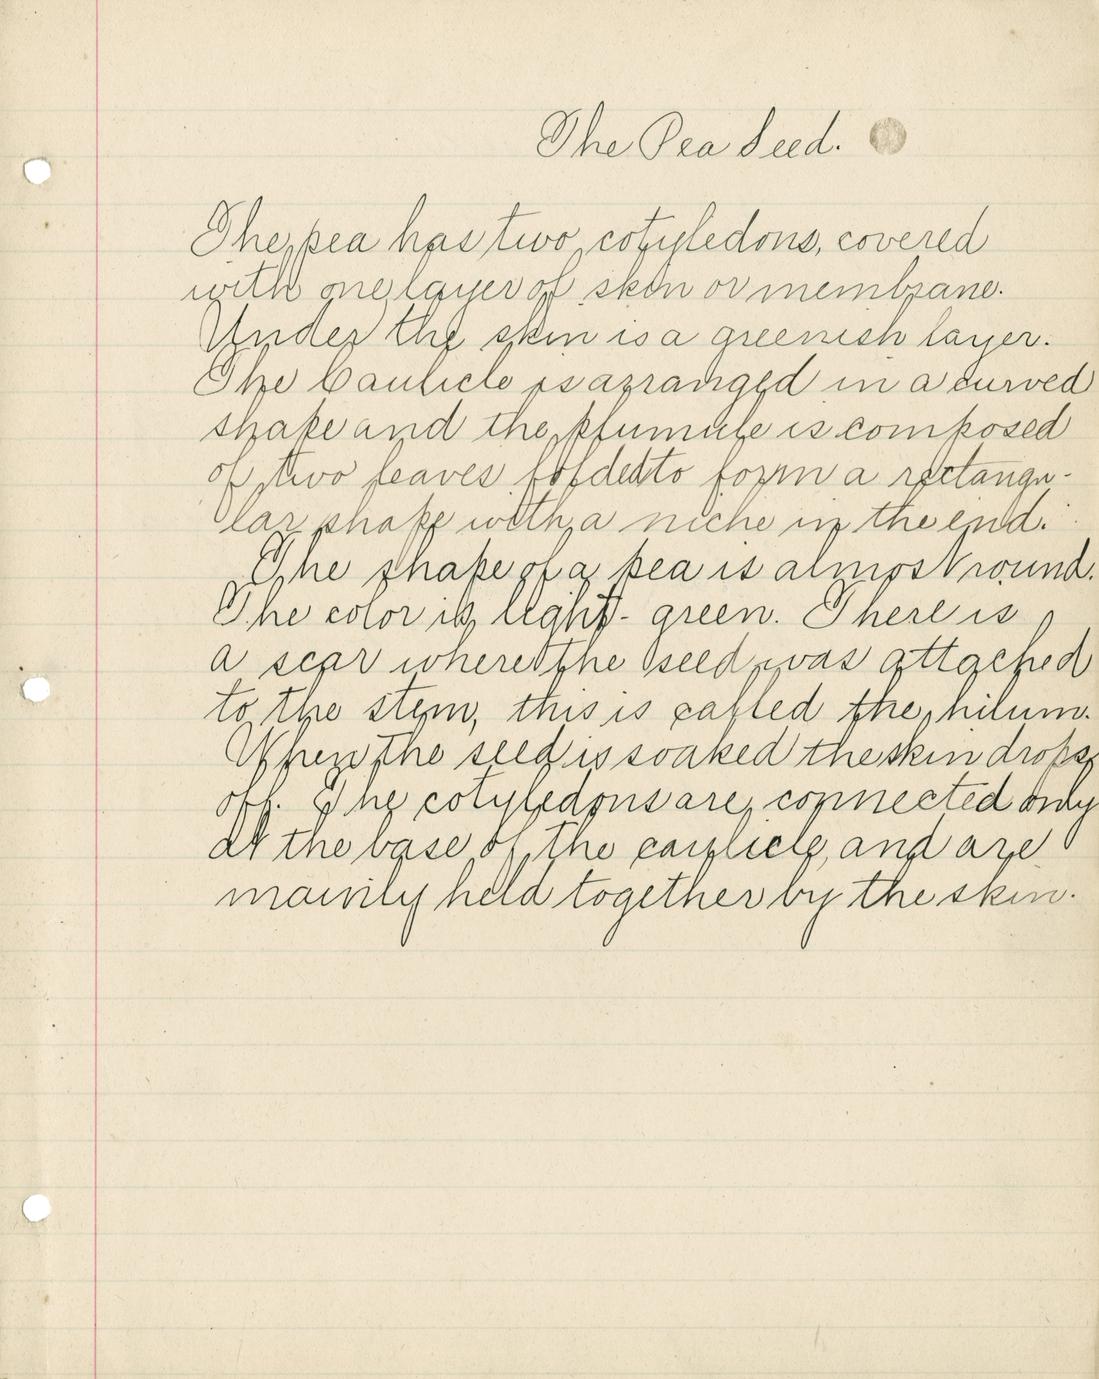 The Pea Seed.
The pea has two cotyledons, covered
with one layer of skin or membrane.
Under the skin is a greenish layer.
The Caulicle is arranged in a curved
shape and the plumule is composed
of two leaves folded to form a rectangu-
lar shape with a niche in the end.
The shape of a pea is almost round.
The color is light- green. There is
a scar where the seed was attached
to the stem, this is called the hilum.
When the seed is soaked the skin drops
off. The cotyledons are connected only
at the base of the caulicle, and are
mainly held together by the skin.